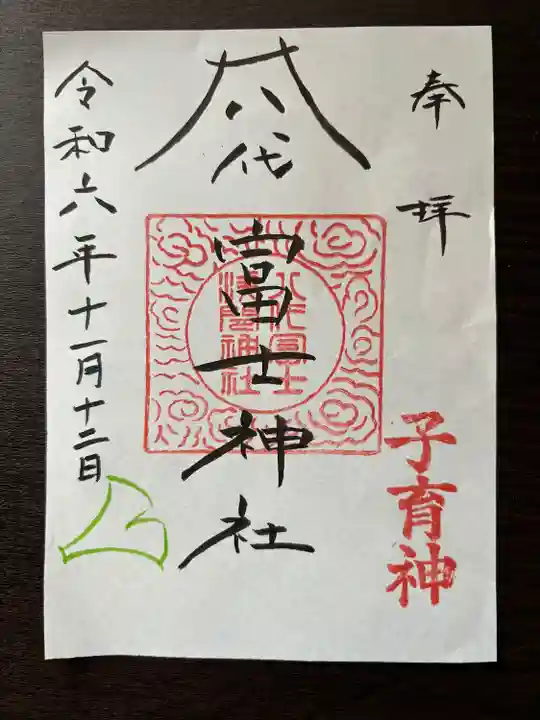 奉拝
子育神
八代
富士神社
八代富士
浅間神社
令和六年十一月十二日